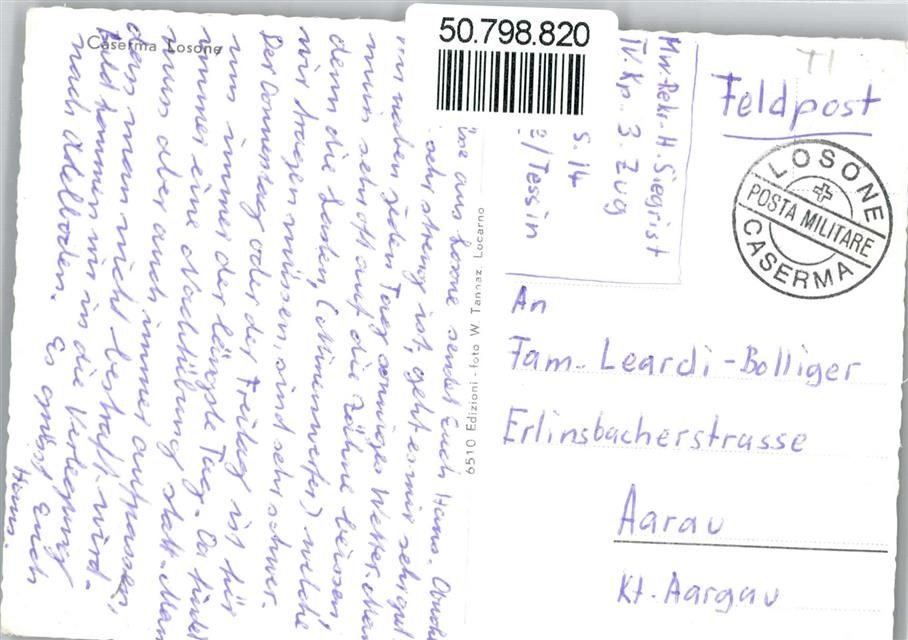 Caserma Losone
50.798.820
T1
Feldpost
LOSONE
POSTA MILITARE
CASERMA
Mw. Rekr. H. Siegrist
IV. Kp. 3. Zug
S. 14
/Tessin
aus Losone sendet Euch Hans.
sehr streng ist, geht es mir sehr gut.
wir haben jeden Tag sonniges Wetter. Man
muss sehr oft auf die Zähne beissen,
denn die Lasten, (Minenwerfer) welche
wir tragen müssen, sind sehr schwer.
Der Donnerstag oder der Freitag ist für
uns immer der längste Tag. Da findet
immer eine Nachtübung statt. Man
muss aber auch immer aufpassen,
dass man nicht bestraft wird.
Bald kommen wir in die Verlegung
nach Adelboden. Es grüsst Euch
Hans.
6510 Edizioni - foto W. Tannaz. Locarno
An
Fam. Leardi-Bolliger
Erlinsbacherstrasse
Aarau
Kt. Aargau